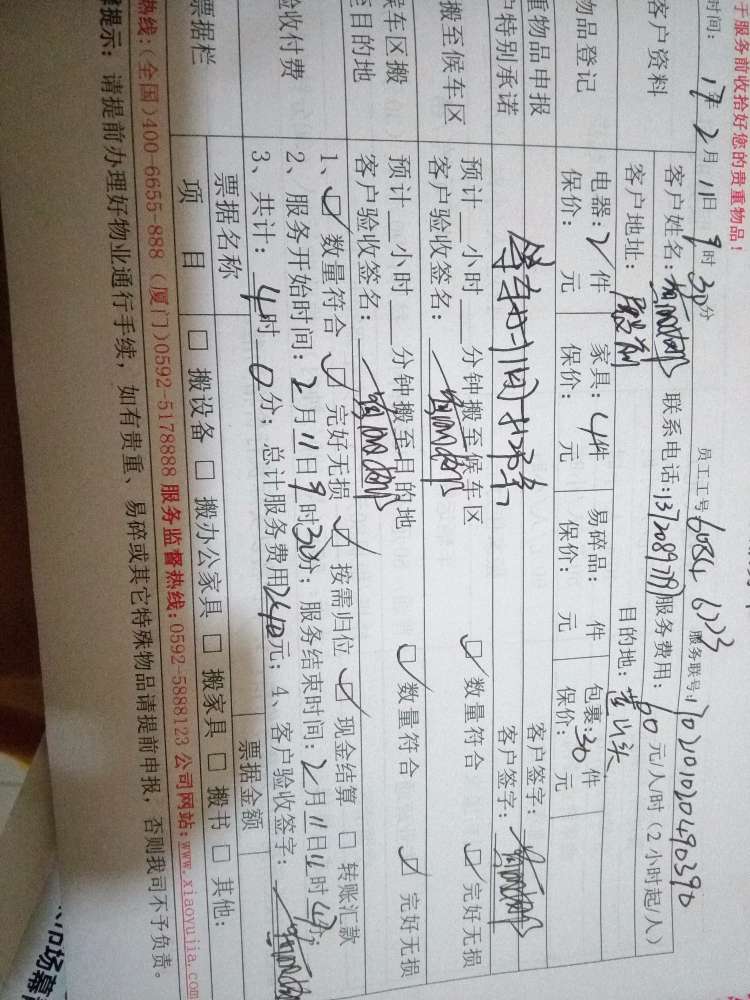 于服务前收拾好您的贵重物品！
员工工号 6084 6723 服务联号: 1702101020490390
时间: 17年 2月 11日 9时 30分
客户资料 客户姓名: 联系电话: 服务费用: 60 元/人/时(2小时起/人)
客户地址: 殿前 目的地:
物品登记 电器: 2件 家具: 4件 易碎品: 件 包裹: 30件
保价: 元 保价: 元 保价: 元 保价: 元
重物品申报 客户签字:
户特别承诺 客户签字:
搬至候车区 预计__小时__分钟搬至候车区 ☑数量符合 ☑完好无损
客户验收签名:
候车区搬 预计__小时__分钟搬至目的地 ☑数量符合 ☑完好无损
至目的地 客户验收签名:
验收付费 1、☑数量符合 ☑完好无损 ☑按需归位 ☑现金结算 □转账汇款
2、服务开始时间: 2月11日9时30分; 服务结束时间: 2月11日
3、共计: 4时0分; 总计服务费用240元; 4、客户验收签字:
票据栏 票据名称 票据金额
项目 □搬设备 □搬办公家具 □搬家具 □搬书 □其他:
热线:(全国)400-6655-888 (厦门)0592-5178888 服务监督热线:0592-5888123 公司网站:www.xiaoyujia.com
提示: 请提前办理好物业通行手续, 如有贵重、易碎或其它特殊物品请提前申报, 否则我司不予负责。
市场幕